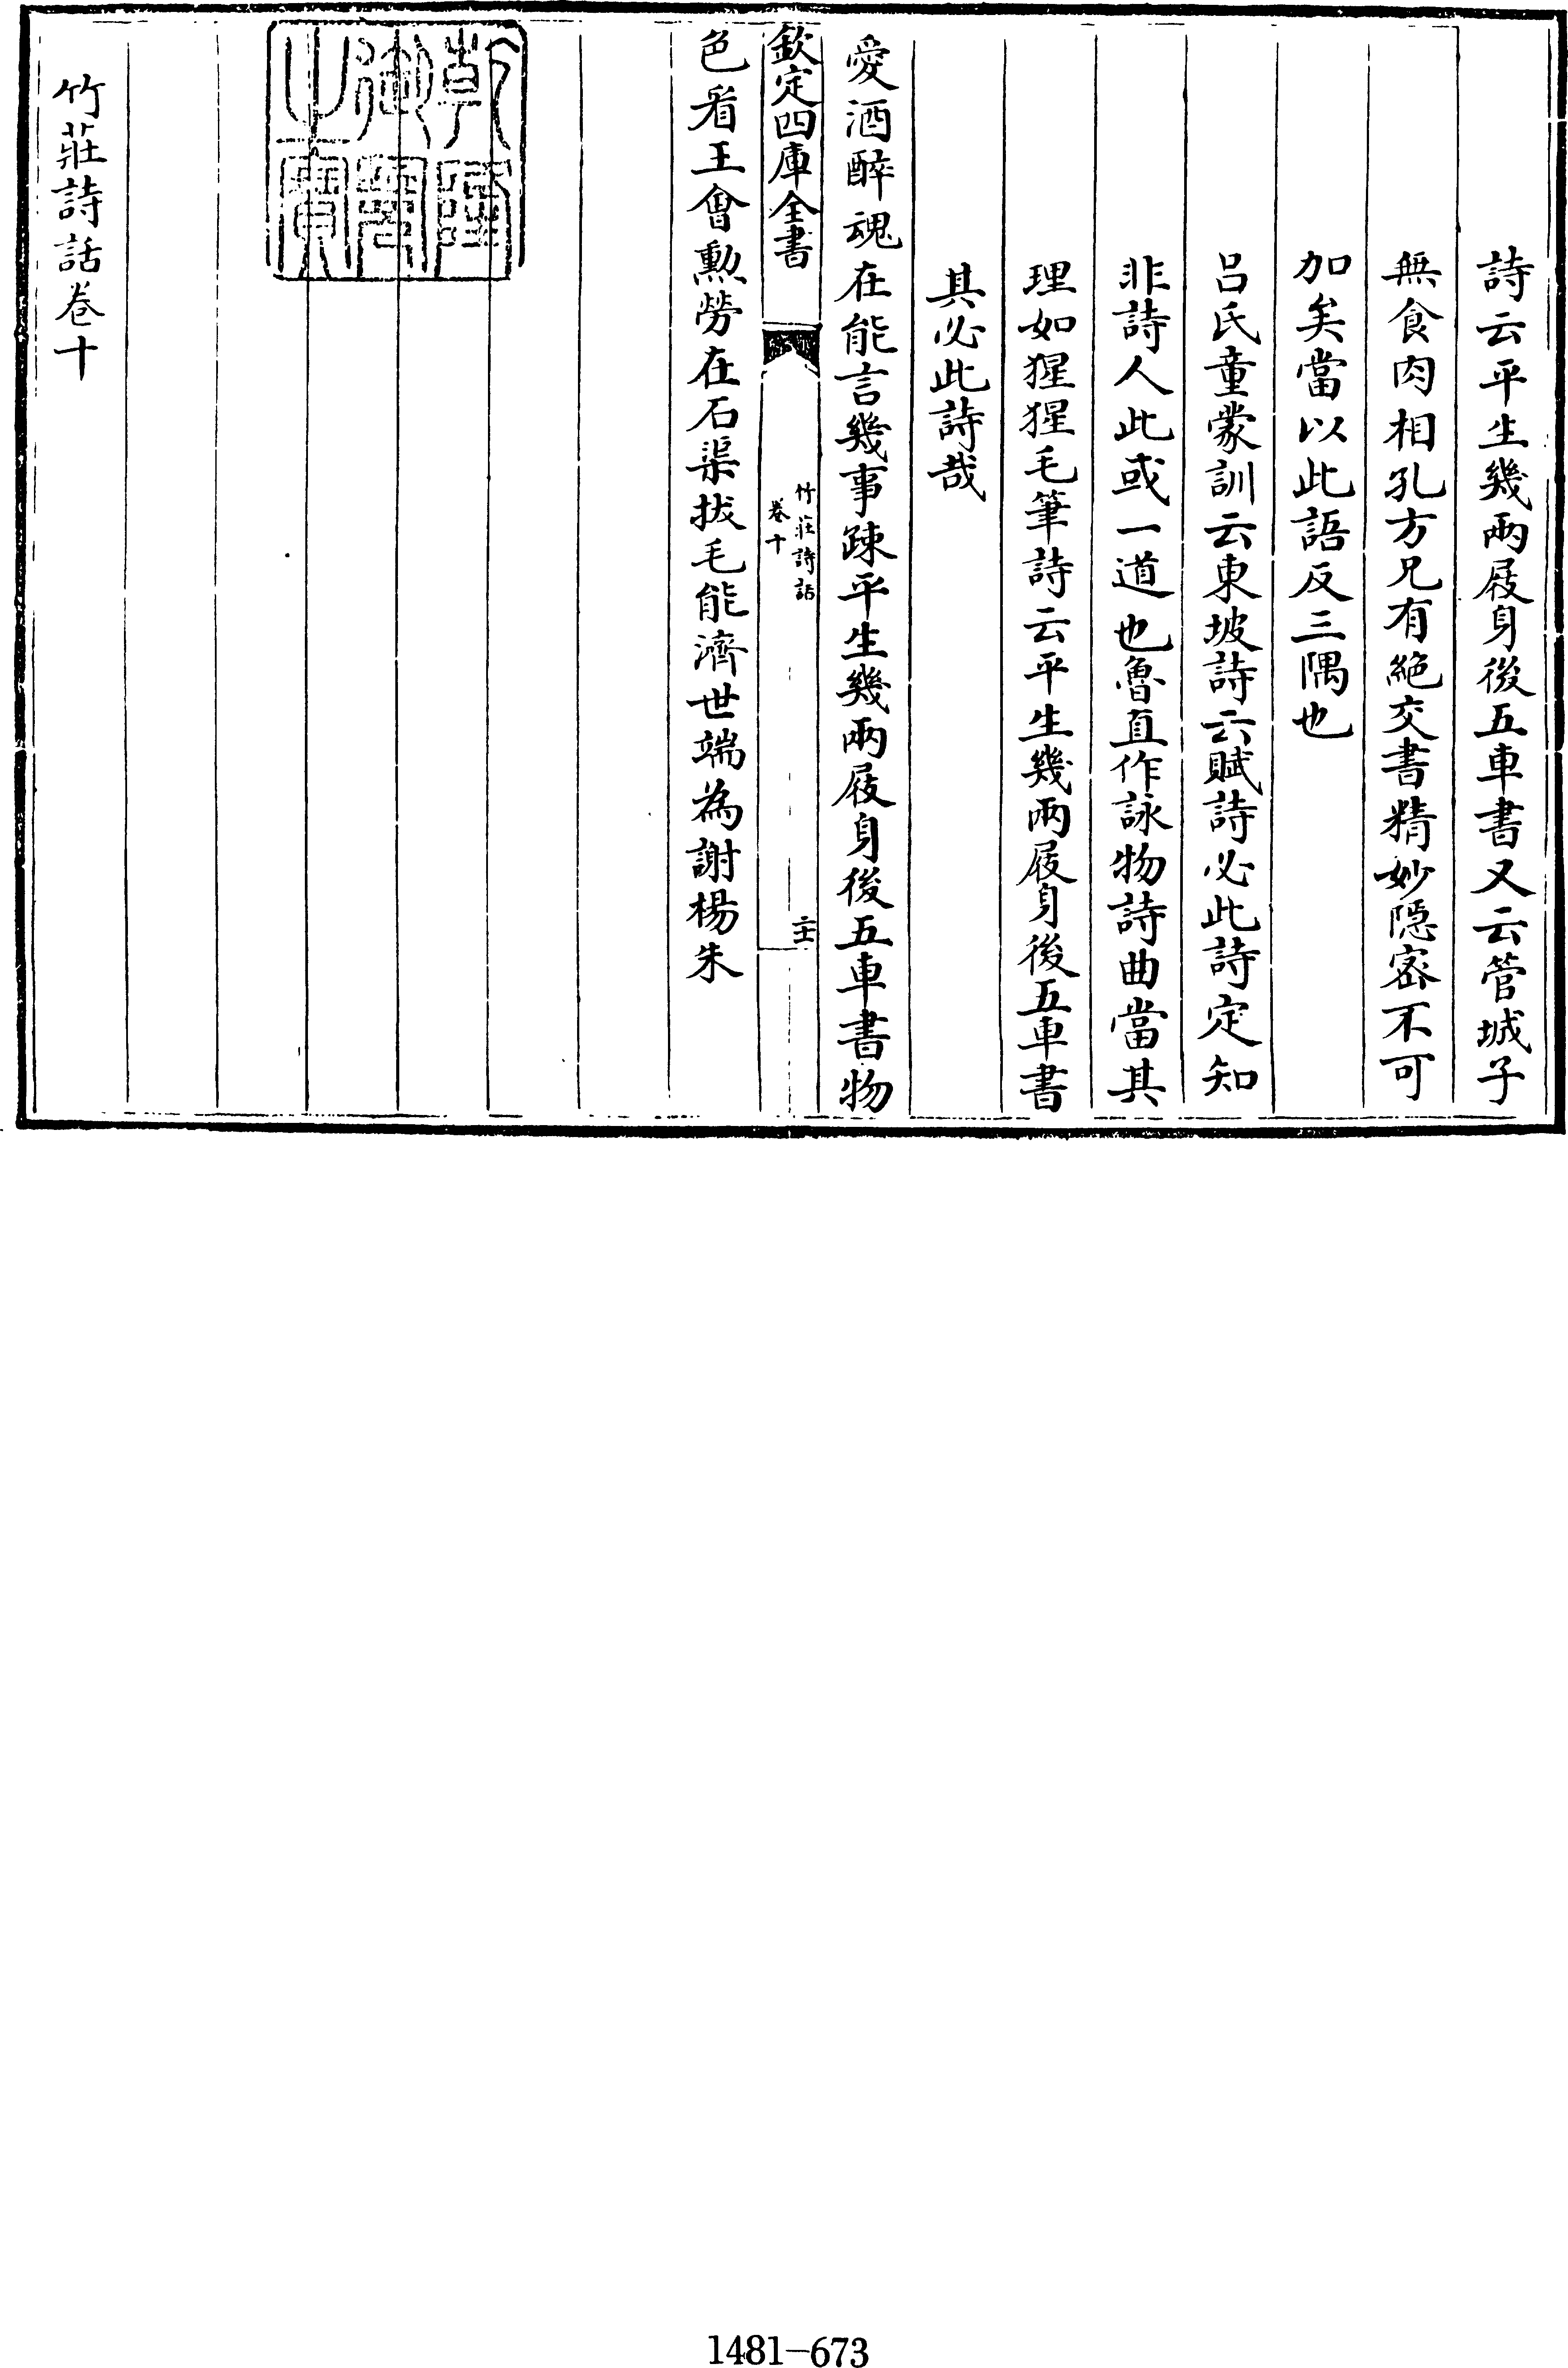 詩云平生幾兩屐身後五車書又云管城子
無食肉相孔方兄有絶交書精妙隠宻不可
加矣當以此語反三隅也
吕氏童蒙訓云東坡詩云賦詩必此詩定知
非詩人此或一道也魯直作詠物詩曲當其
理如猩猩毛筆詩云平生幾兩屐身後五車書
其必此詩哉
愛酒醉魂在能言幾事疎平生幾兩屐身後五車書物
欽定四庫全書
竹莊詩話
卷十
二十一
色看王會勲勞在石渠拔毛能濟世端為謝楊朱
乾隆
御覽
之寶
竹莊詩話卷十
1481-673